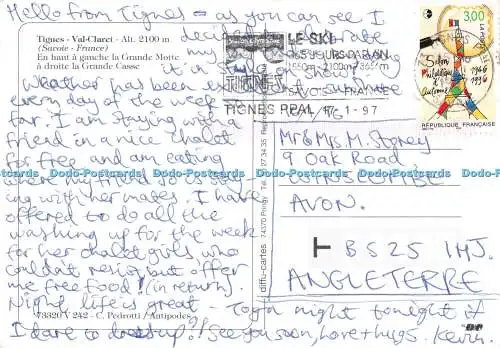 Hello from Tignes - as you can see I
decided to celebrate
my
it in style
Tignes - Val-Claret - Alt. 2100 m
(Savoie - France)
En haut à gauche la Grande Motte
à droite la Grande Casse
Weather has been
every day of the week so
far. I am staying with
friend in a nice chalet
for free and am eating
where my friend is stay
ing with her mates. I have
offered to do all the
washing up for the week
for her chalet girls who
couldn't resist but offer
me free food (in return).
Night life is great. Toga night tonight if
I dare to dress up! See you soon, love + hugs. Kevin.
73320 V 242 - C. Pedrotti / Antipodes
diffu-cartes - 74370 Pringy - Tél. 50 27 34 35
LE SKI
365 JOURS PAR AN
TIGNES
SAVOIE FRANCE
TIGNES PPAL 1-97
3,00
LA POSTE
Salon
Philatélique
d'Automne
1946
1996
REPUBLIQUE FRANÇAISE
Mr & Mrs M. Storey
9 Oak Road
WINSCOMBE
AVON.
BS25 1HJ.
ANGLETERRE
Dodo-Postcards Dodo-Postcards Dodo-Postcards Dodo-Postcards